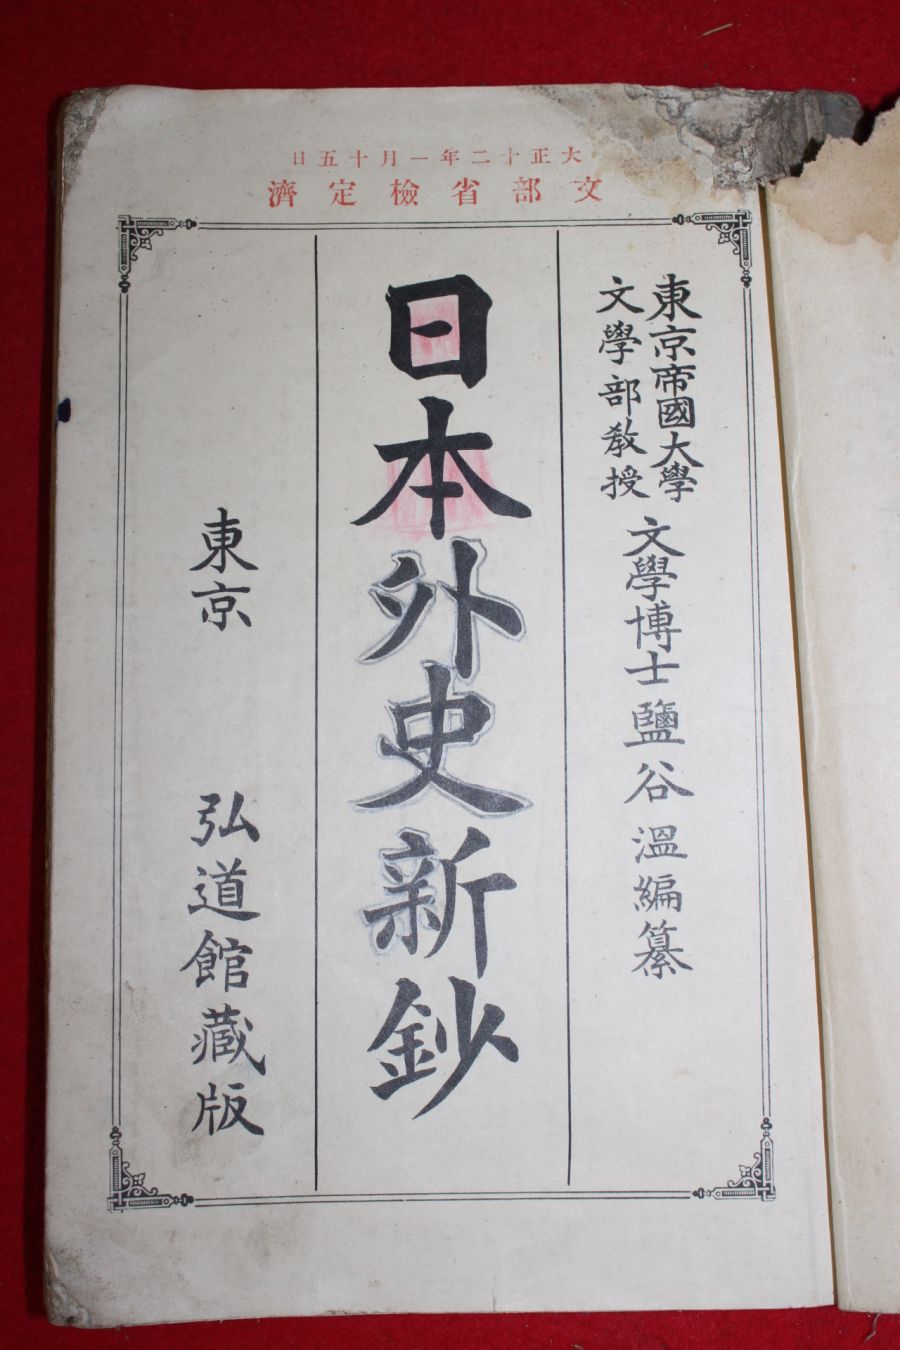 大正十二年一月十五日
文部省檢定濟
東京帝國大學
文學部教授
文學博士鹽谷溫編纂
日本外史新鈔
東京 弘道館藏版